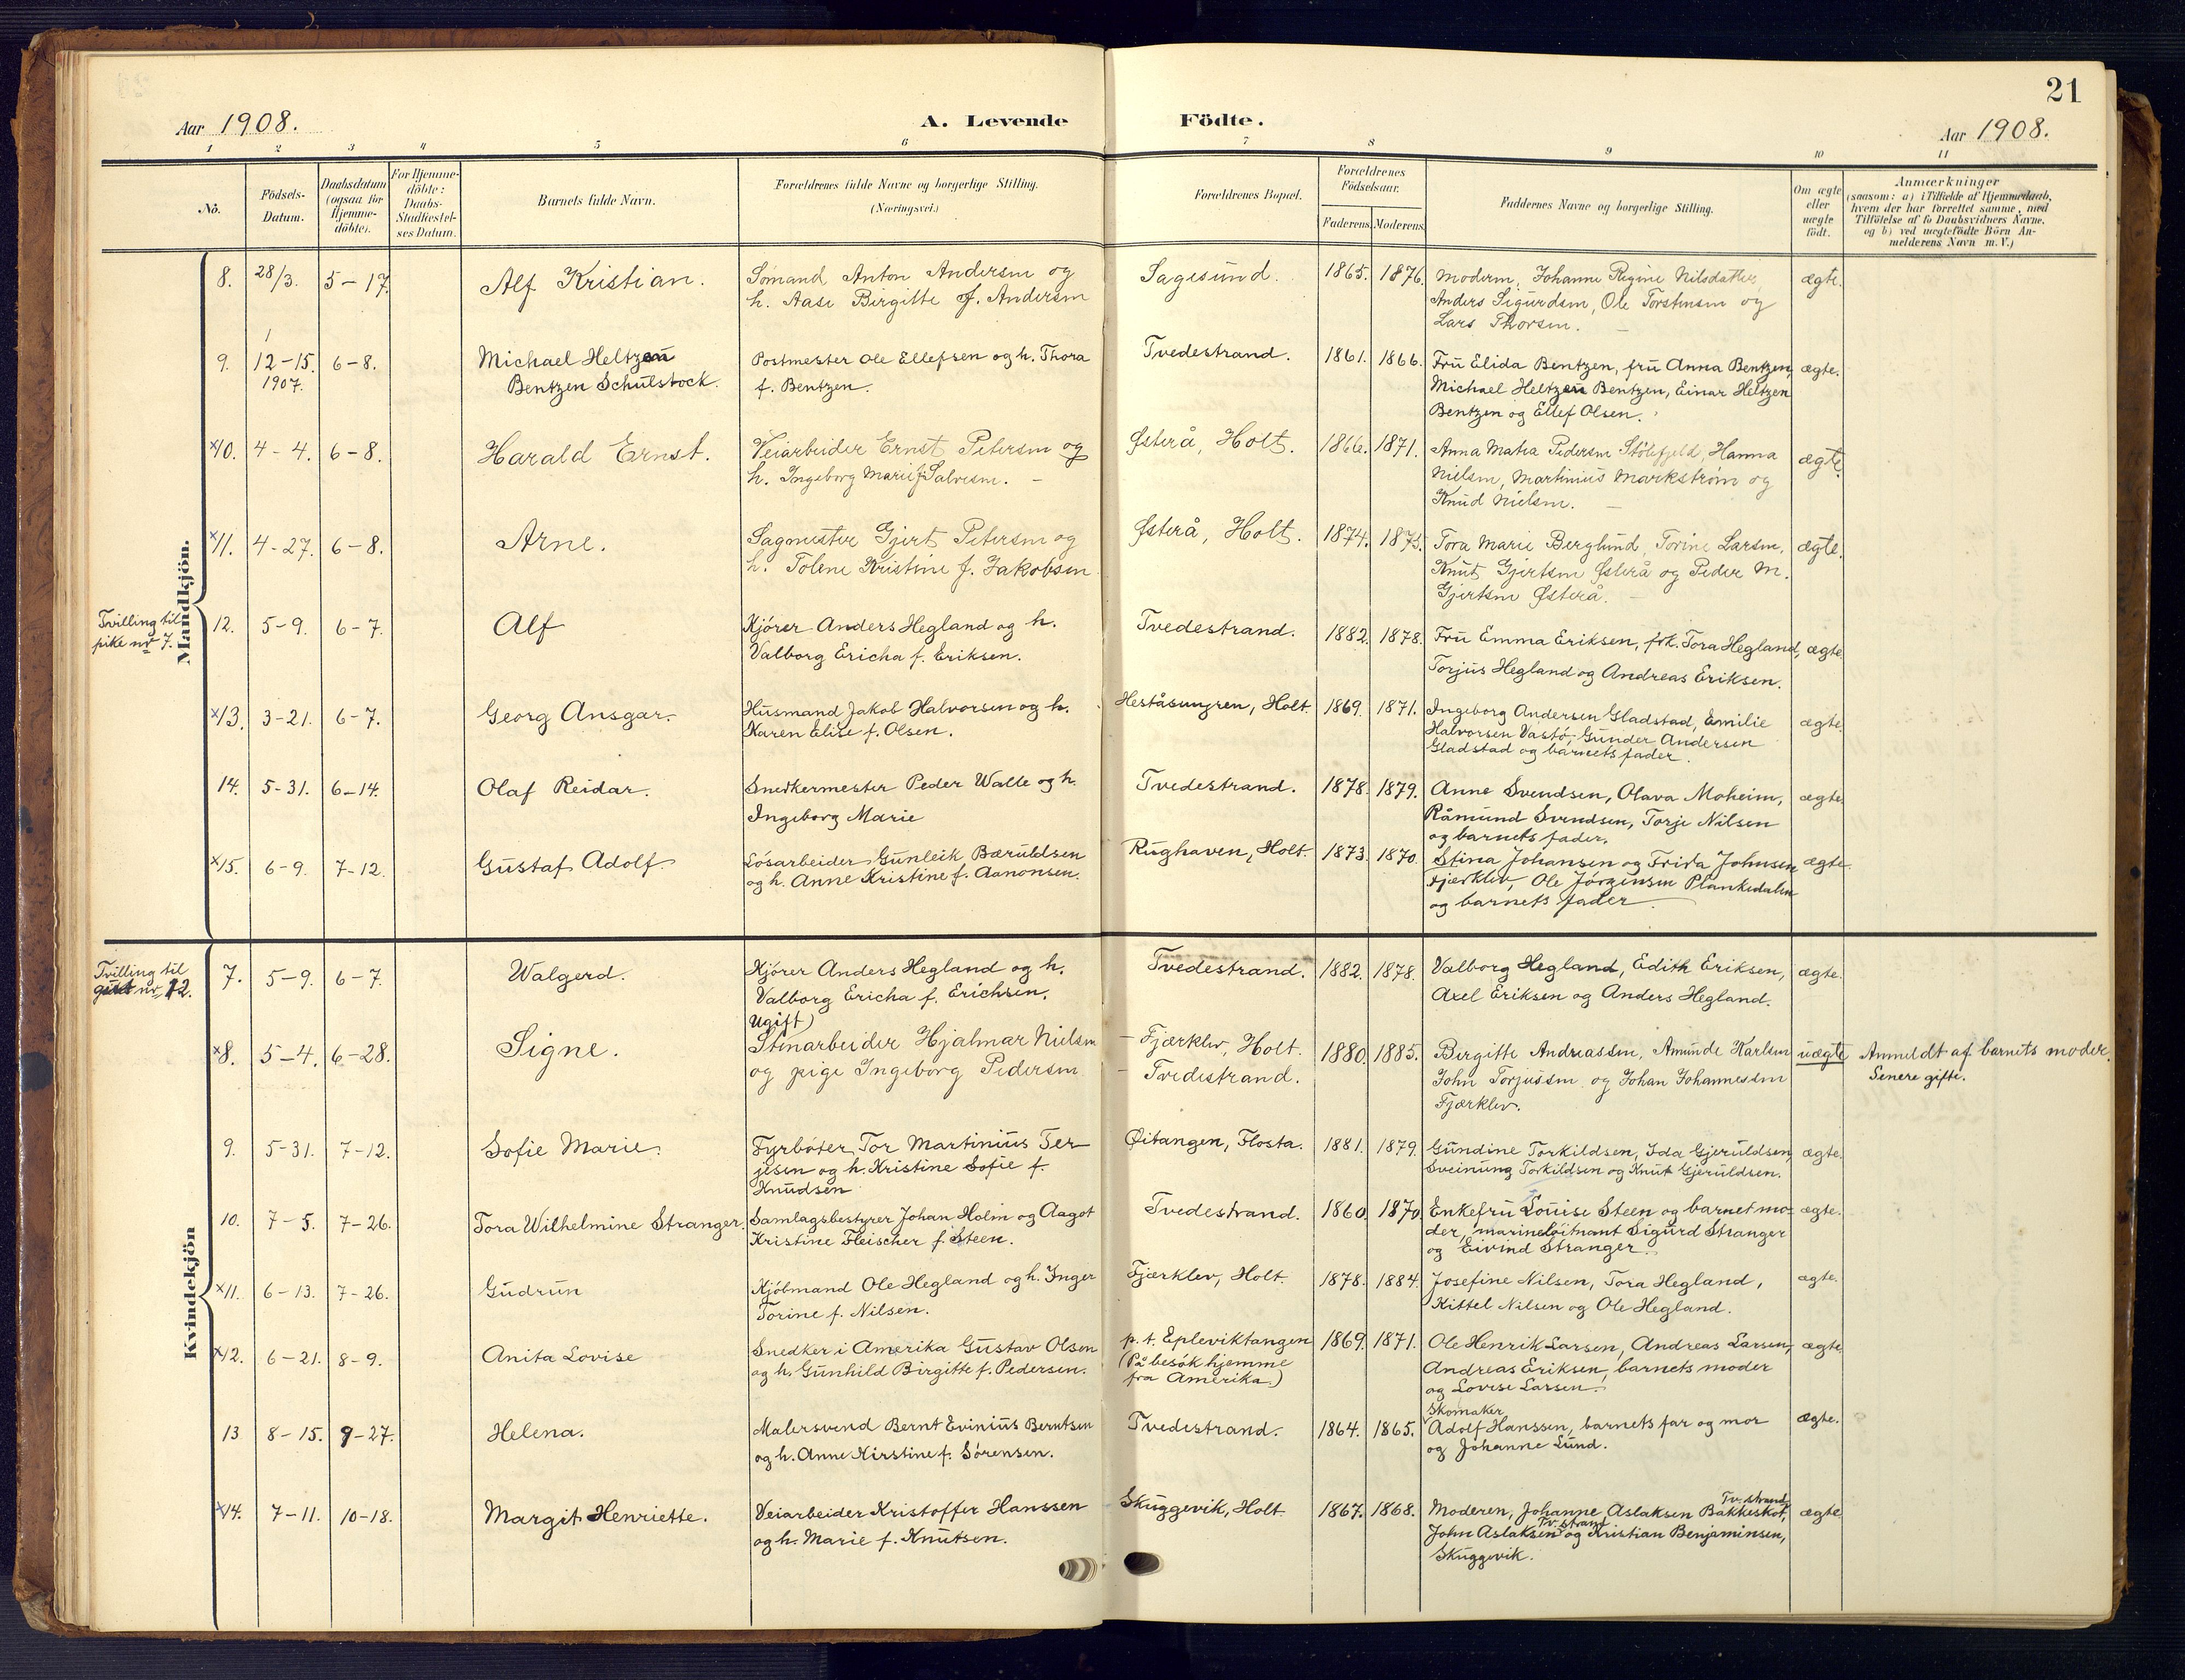 21
Aar 1908.
A. Levende Födte.
Aar 1908.
1 2 3 4 5 6 7 8 9 10 11
Nö.
Födsels-
Datum.
Daabsdatum
(ogsaa for
Hjemme-
döbte).
For Hjemme-
döbte:
Daabs-
Stadfæstel-
ses Datum.
Barnets fulde Navn.
Forældrenes fulde Navne og borgerlige Stilling.
(Næringsvei.)
Forældrenes Bopæl.
Forældrenes
Födselsaar.
Faderens. Moderens.
Faddernes Navne og borgerlige Stilling.
Om ægte
eller
uægte
födt.
Anmærkninger
(saasom: a) i Tilfælde af Hjemmedaab,
hvem der har forrettet samme, med
Tilföielse af to Daabsvidners Navne,
og b) ved uægtefödte Börn An-
melderens Navn m. V.)
Mandkjön.
8. 28/3. 5-17. Alf Kristian.
Sömand Anton Andersen og
h. Aase Birgitte f. Andersen
Sagesund. 1865. 1876.
Moderen, Johanne Regine Nilsdatter,
Anders Sigurdsen, Ole Torstensen og
Lars Thorsen.
ægte.
9. 12-15. 1907. 6-8.
Michael Heltzen
Bentzen Schulstock.
Postmester Ole Ellefsen og h. Thora
f. Bentzen.
Tvedestrand. 1861. 1866.
Fru Elida Bentzen, fru Anna Bentzen,
Michael Heltzen Bentzen, Einar Heltzen
Bentzen og Ellef Olsen.
ægte.
x10. 4-4. 6-8. Harald Ernst.
Veiarbeider Ernst Petersen og
h. Ingeborg Marie f. Salvesen.
Østerå, Holt. 1866. 1871.
Anna Matea Pedersen Stölefjeld, Hanna
Nielsen, Martinius Markström og
Knud Nielsen.
ægte.
x11. 4-27. 6-8. Arne.
Sagmester Gjert Petersen og
h. Tolene Kristine f. Jakobsen
Østerå, Holt. 1874. 1875.
Tora Marie Berglund, Torine Larsen,
Knut Gjertsen Østerå og Peder M.
Gjertsen Østerå.
ægte.
Tvilling til
pike nr 7.
12. 5-9. 6-7. Alf
Kjörer Anders Hegland og h.
Valborg Ericha f. Eriksen.
Tvedestrand. 1882. 1878.
Fru Emma Eriksen, frk. Tora Hegland,
Torjus Hegland og Andreas Eriksen.
ægte.
x13. 3-21. 6-7. Georg Ansgar.
Husmand Jakob Halvorsen og h.
Karen Elise f. Olsen.
Heståsungren, Holt. 1869. 1871.
Ingeborg Andersen Gladstad, Emilie
Halvorsen Vastö, Gunder Andersen
Gladstad og barnets fader.
ægte.
14. 5-31. 6-14. Olaf Reidar.
Snedkermester Peder Walle og h.
Ingeborg Marie
Tvedestrand. 1878. 1879.
Anne Svendsen, Olava Moheim,
Råmund Svendsen, Torje Nilsen
og barnets fader.
ægte.
x15. 6-9. 7-12. Gustaf Adolf.
Lösarbeider Gunleik Bæruldsen
og h. Anne Kristine f. Aanonsen.
Rughaven, Holt. 1873. 1870.
Stina Johansen og Frida Johnsen
Fjærklev, Ole Jörgensen Plankedalen
og barnets fader
ægte.
Kvindekjön
Tvilling til
gut nr 12.
7. 5-9. 6-7. Walgerd.
Kjörer Anders Hegland og h.
Valborg Ericha f. Erichsen.
Tvedestrand. 1882. 1878.
Valborg Hegland, Edith Eriksen,
Axel Eriksen og Anders Hegland.
ægte.
x8. 5-4. 6-28. Signe.
Ugift)
Stenarbeider Hjalmar Nielsen
og pige Ingeborg Pedersen
- Fjærklev, Holt.
- Tvedestrand.
1880. 1885.
Birgitte Andreassen, Amunde Karlsen
John Torjussen og Johan Johannessen
Fjærklev.
uægte
Anmeldt af barnets moder.
Senere gifte.
9. 5-31. 7-12. Sofie Marie.
Fyrböter Tor Martinius Ter-
jesen og h. Kristine Sofie f.
Knudsen
Øitangen, Flosta. 1881. 1879.
Gundine Torkildsen, Ida Gjeruldsen
Sveinung Torkildsen og Knut Gjeruldsen.
ægte.
10. 7-5. 7-26. Tora Wilhelmine Stranger.
Samlagsbestyrer Johan Holm og Aagot
Kristine Fleischer f. Steen.
Tvedestrand. 1860. 1870.
Enkefru Louise Steen og barnets mo-
der, marinelöitnant Sigurd Stranger
og Eivind Stranger.
ægte.
x11. 6-13. 7-26. Gudrun
Kjöbmand Ole Hegland og h. Inger
Torine f. Nilsen.
Fjærklev, Holt. 1878. 1884.
Josefine Nilsen, Tora Hegland,
Kittel Nilsen og Ole Hegland.
ægte.
x12. 6-21. 8-9. Anita Lovise
Snedker i Amerika Gustav Olsen
og h. Gunhild Birgitte f. Pedersen.
p. t. Epleviktangen
(På besök hjemme
fra Amerika.)
1869. 1871.
Ole Henrik Larsen, Andreas Larsen,
Andreas Eriksen, barnets moder
og Lovise Larsen.
ægte.
13. 8-15. 9-27. Helena.
Malersvend Bernt Evinius Berntsen
og h. Anne Kirstine f. Sörensen.
Tvedestrand. 1864. 1865.
Skomaker
Adolf Hanssen, barnets far og mor
og Johanne Lund.
ægte.
x14. 7-11. 10-18. Margit Henriette.
Veiarbeider Kristoffer Hanssen
og h. Marie f. Knutsen.
Skuggevik, Holt 1867. 1868.
Tv.strand
Moderen, Johanne Aslaksen Bakkeskot,
Tv.strand
John Aslaksen og Kristian Benjaminsen,
Skuggevik.
ægte.